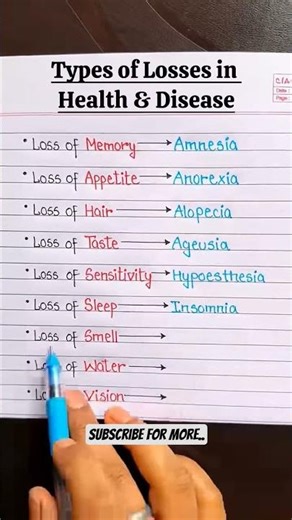 Types of Losses in
Health & Disease
Date:
Page:
• Loss of Memory → Amnesia
• Loss of Appetite → Anorexia
• Loss of Hair → Alopecia
• Loss of Taste → Ageusia
• Loss of Sensitivity → Hypoesthesia
• Loss of Sleep → Insomnia
• Loss of Smell →
• Loss of Water →
• Vision →
SUBSCRIBE FOR MORE..